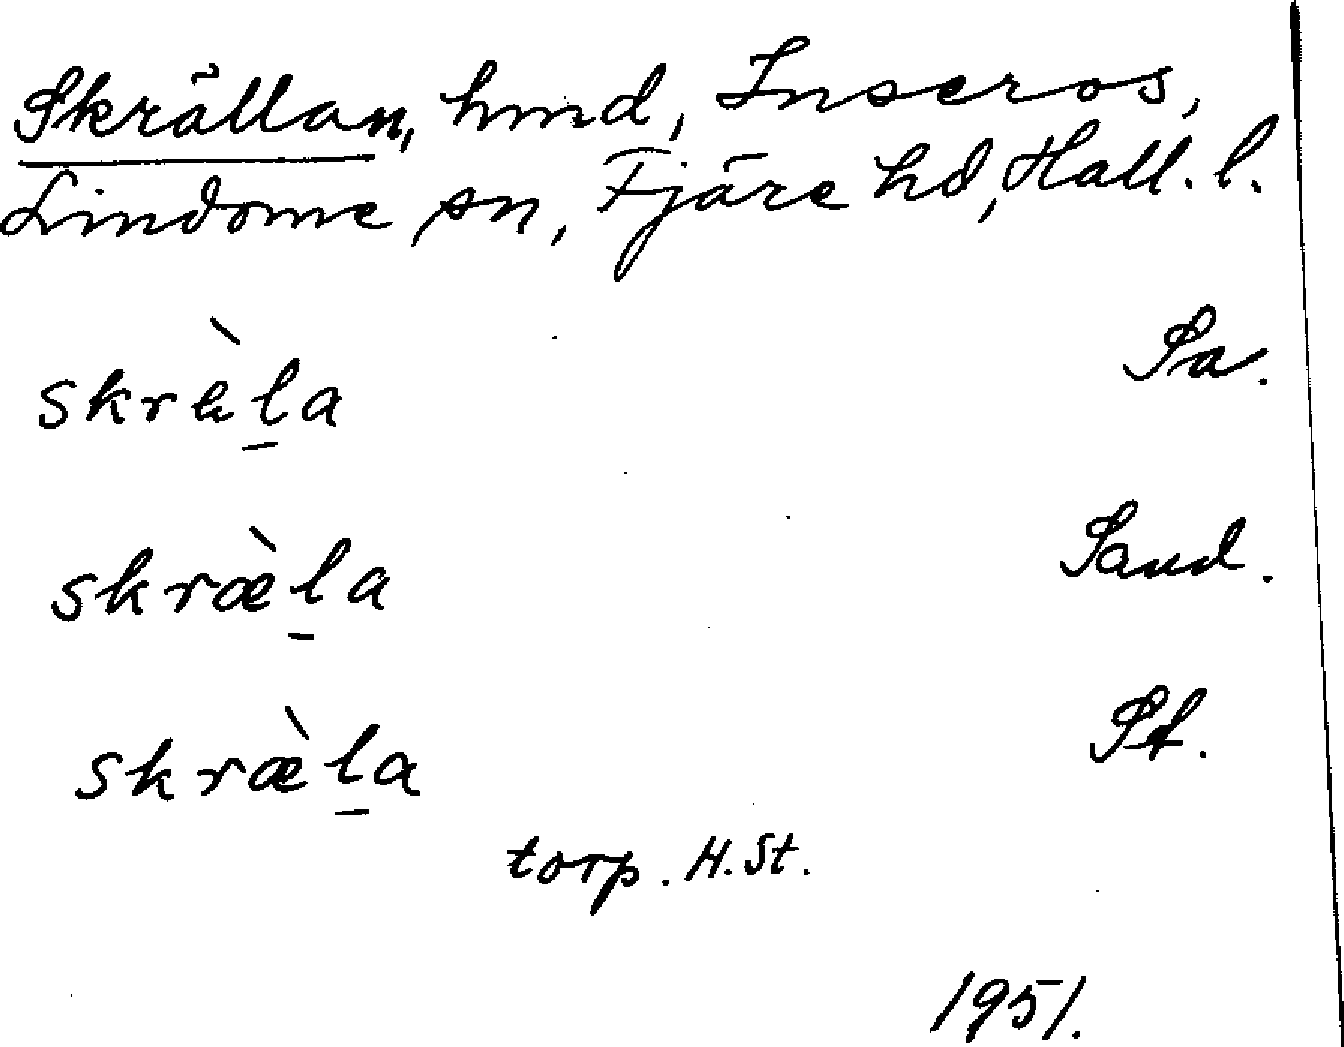 Skrällan, hmd, Inseros,
Lindome sn, Fjäre hd, Hall. l.
skrὲḻa Sa.
skræ̀ḻa Sand.
skræ̀ḻa St.
torp. H. St.
1951.